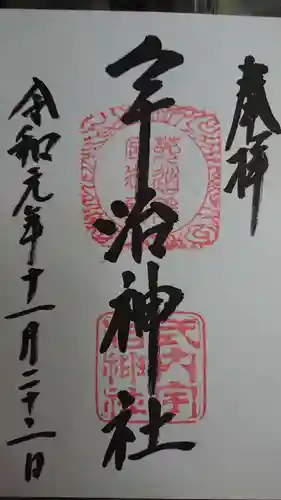 奉拝
宇治神社
令和元年十一月二十二日
式内宇
治神社